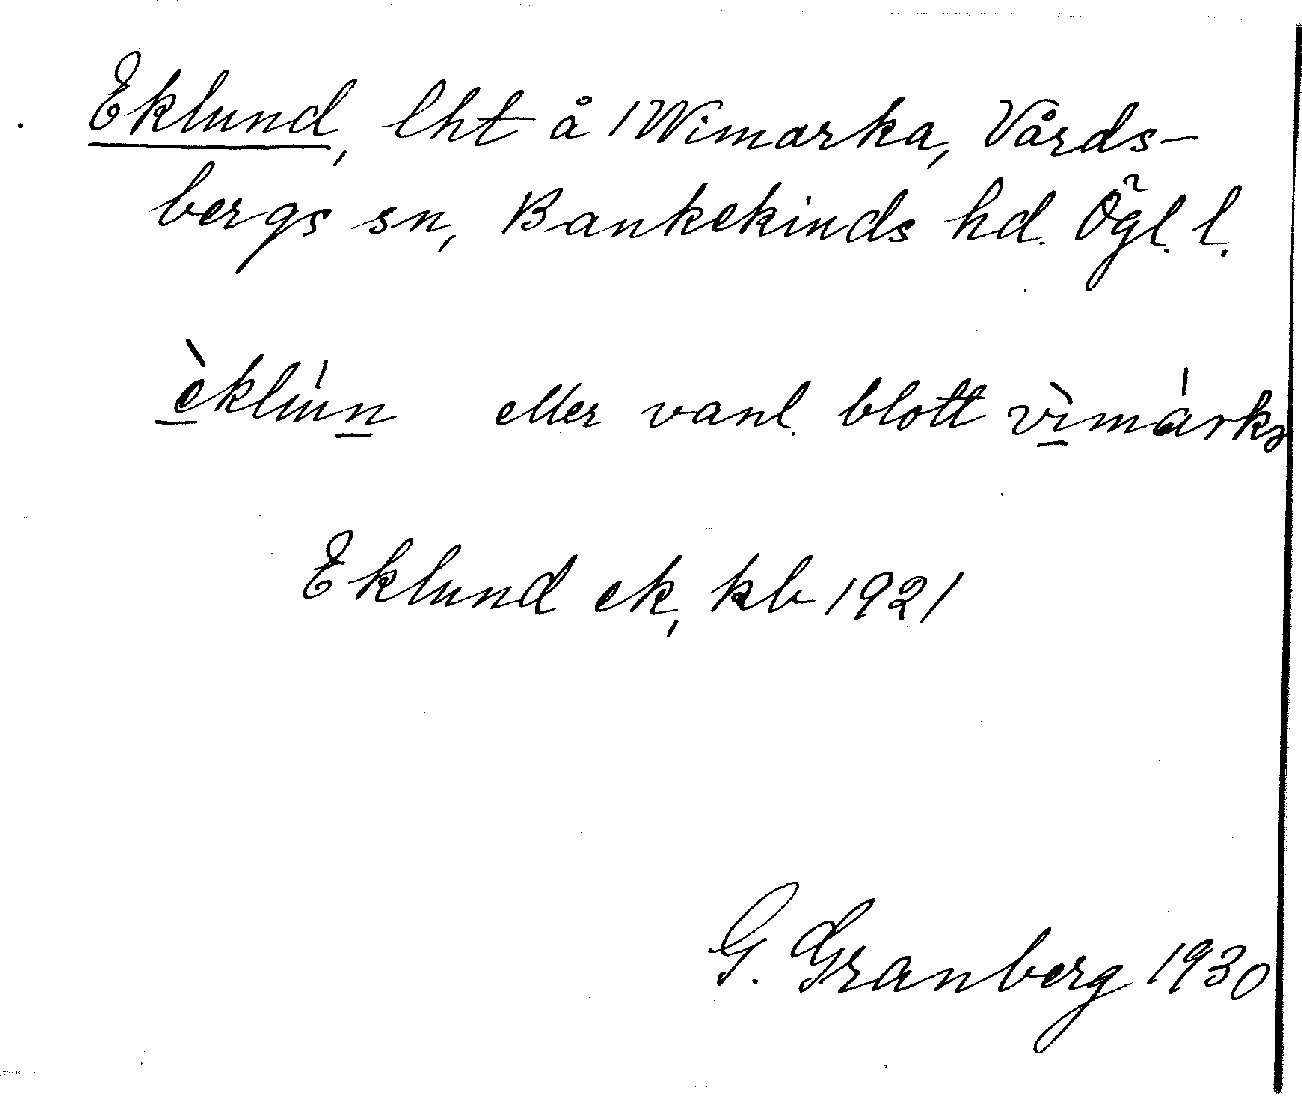 Eklund, lht å Wimarka, Vårds-
bergs sn, Bankekinds hd. Ögl. l.
èklún eller vanl. blott vìmárka
Eklund ek, kb 1921
G. Granberg 1930